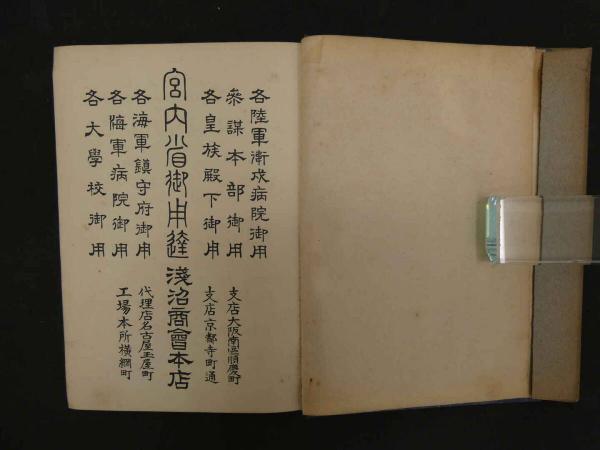 各陸軍衛戍病院御用
參謀本部御用
各皇族殿下御用
支店大阪南區順慶町
支店京都寺町通
宮内省御用達淺沼商會本店
各海軍鎮守府御用
各海軍病院御用
各大學校御用
代理店名古屋玉屋町
工場本所横網町